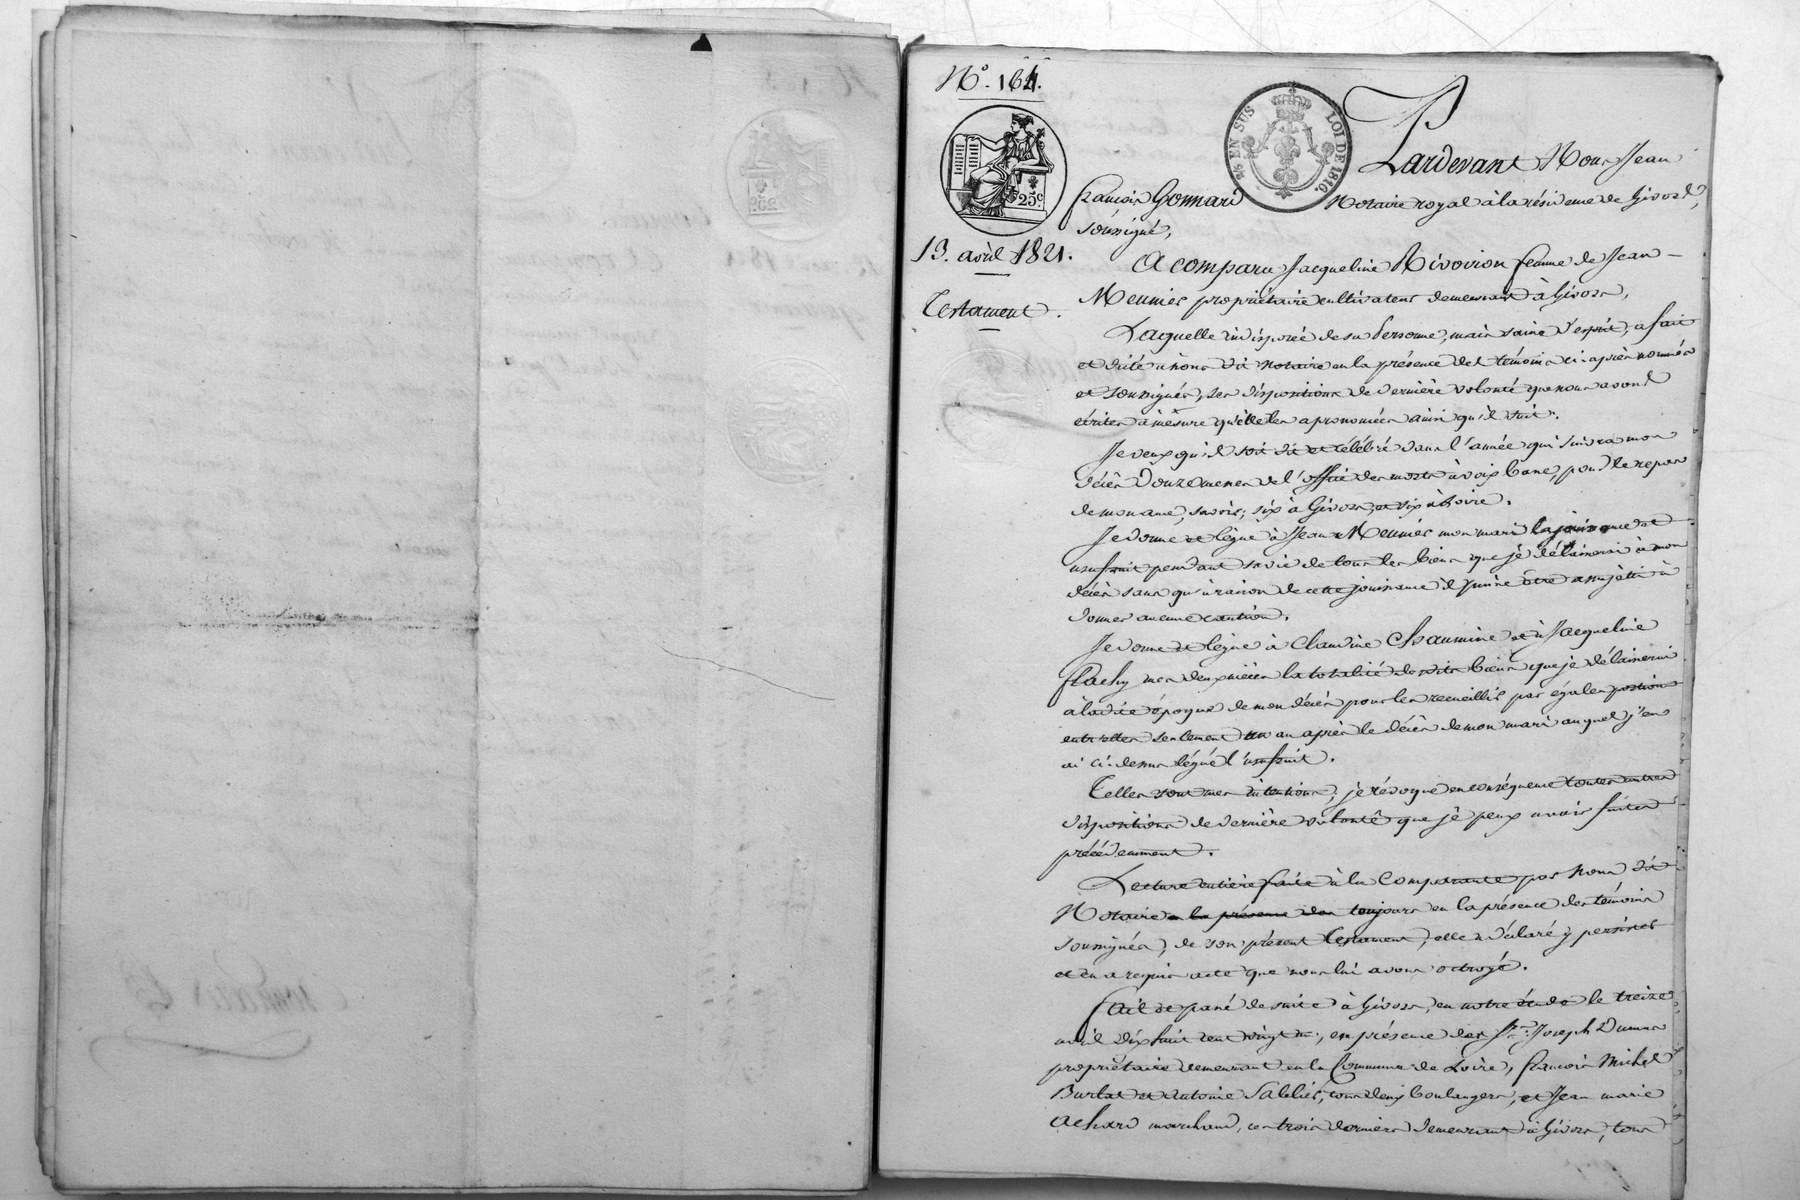 N°. 164.
25c
¼ EN SUS LOI DE 1816.
Pardevant Nous Jean
françois Gonnard Notaire royal à la résidence de Givors,
soussigné,
13. avril 1821.
A comparu Jacqueline Rivoiron femme de Jean
Meunier propriétaire cultivateur demeurant à Givors,
Testament.
Laquelle indisposée de sa Personne, mais saine d'esprit, a fait
et dicté à nous dit Notaire en la présence des témoins ci-après nommés
et soussignés, ses dispositions de dernière volonté que nous avons
écrites à mesure qu'elle les a prononcées ainsi qu'il suit.
Je veux qu'il soit dit et célébré dans l'année qui suivra mon
décès douze messes de l'office des morts à voix basse, pour le repos
de mon ame, savoir; six à Givors, et six à Loire.
Je donne et lègue à Jean Meunier mon mari la jouissance et
usufruit pendant sa vie de tous les biens que je délaisserai à mon
décès sans qu'à raison de cette jouissance il puisse être assujetti à
donner aucune caution.
Je donne et lègue à Claudine Chaumine et à Jacqueline
flachy mes deux nièces la totalité desdits biens que je délaisserai
à ladite époque de mon décès pour les recueillir par égales portions
entr'elles seulement un an après le décès de mon mari auquel j'en
ai ci-dessus légué l'usufruit.
Telles sont mes intentions, je révoque en conséquence toutes autres
dispositions de dernière volonté que je peux avoir faites
précédemment.
Lecture entière faite à la Comparante par Nous dit
Notaire en la présence des toujours en la présence des témoins
soussignés, de son présent testament, elle a déclaré y persister
et en a requis acte que nous lui avons octroyé.
fait et passé de suite à Givors, en notre étude le treize
avril dix huit cent vingt un, en présence des Srs. Joseph Dumas
propriétaire demeurant en la Commune de Loire, françois Michel
Burlat et Antoine Sablier, tous deux boulangers, et Jean marie
Achard marchand, ces trois derniers demeurant à Givors, tous